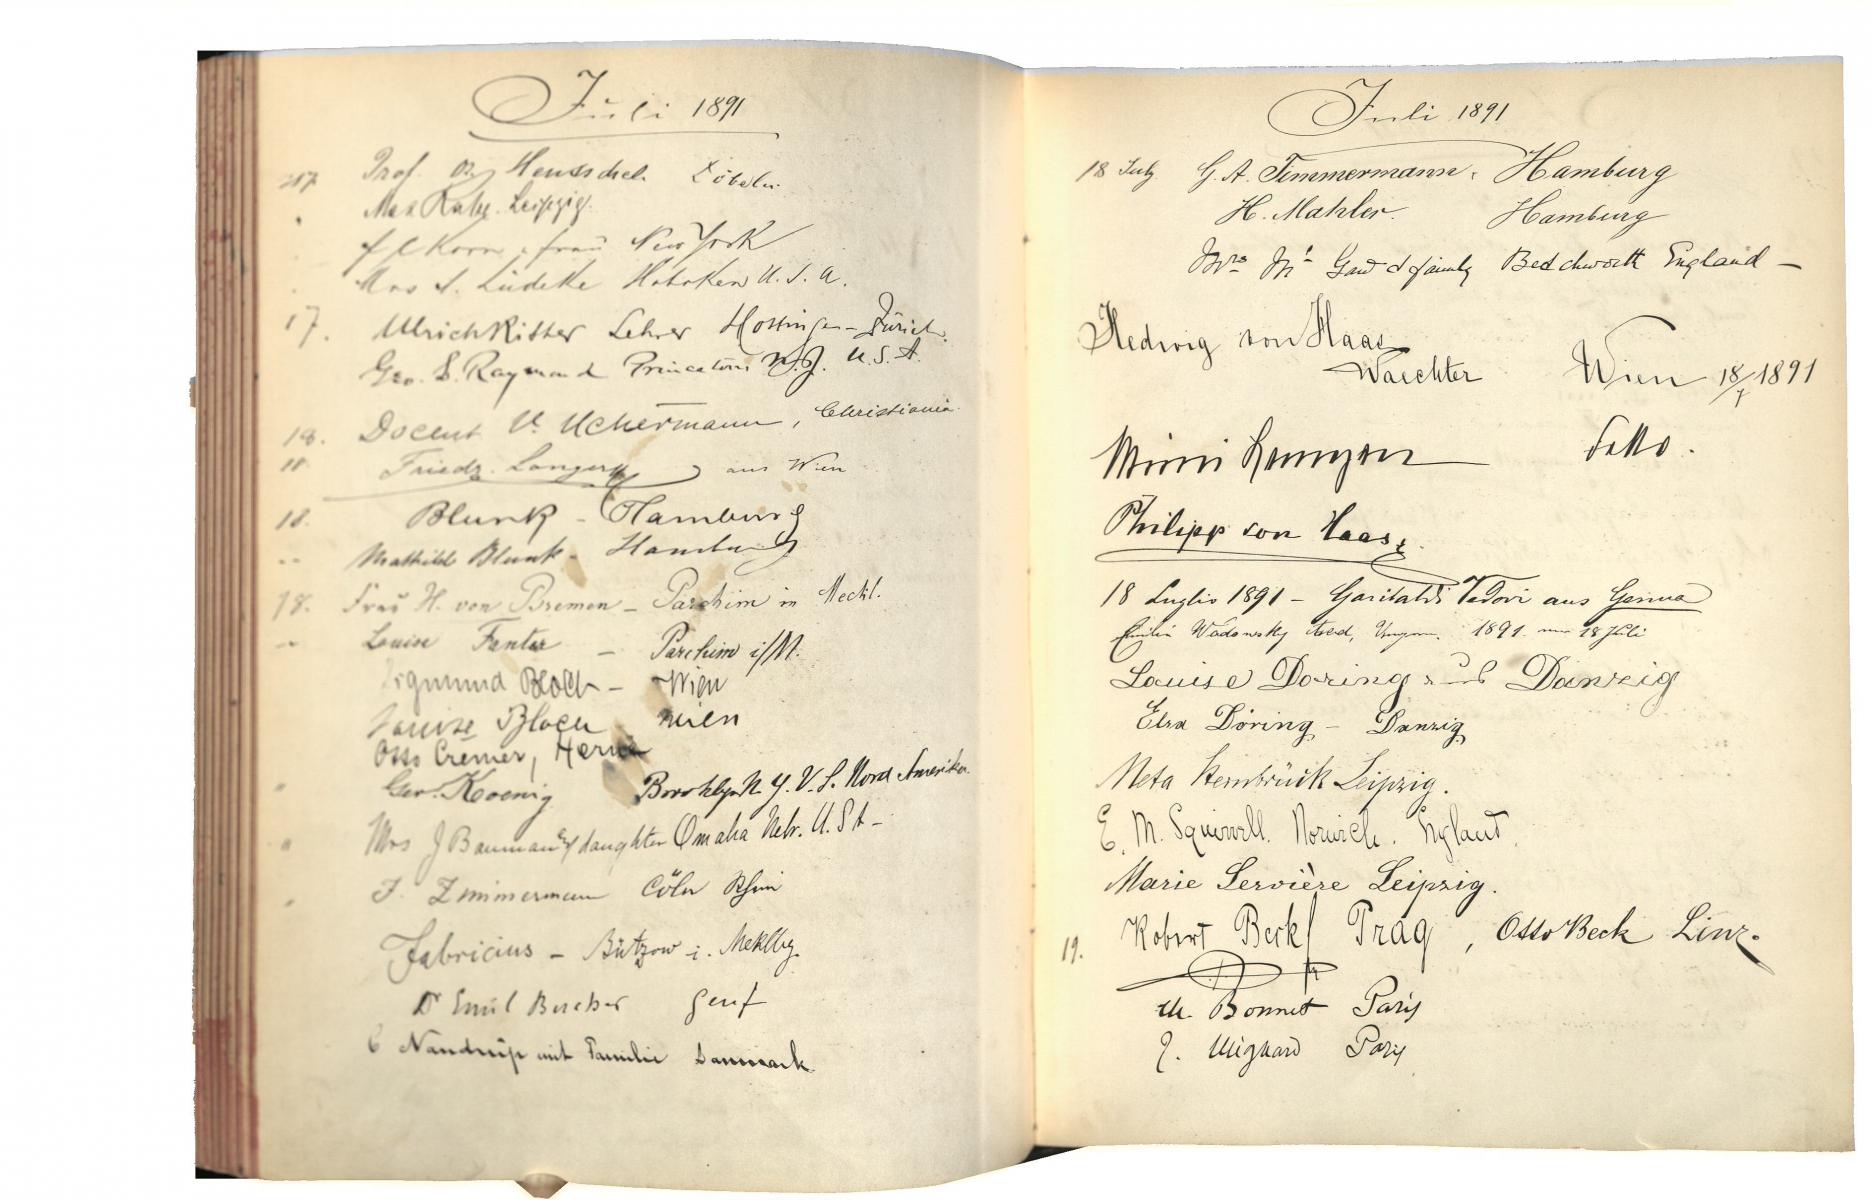 Juli 1891
17. Prof. Dr. Hentschel Döbeln.
Max Rahn. Leipzig.
Korn, frau New York
Mrs S. Lüdeke Hoboken U. S. A.
17. Ulrich Ritter Lehrer Hottingen - Zürich.
Geo. L. Raymond Princeton N. J. U. S. A.
18. Docent V. Uchermann, Christiania.
18. Friedr. aus Wien
18. Blunk - Hamburg
Mathilde Blunk - Hamburg
18. Frau H. von Bremen - Parchim in Meckl.
Louise - Parchim i/M.
Sigmund Bloch - Wien
Louise Bloch Wien
Otto Cremer, Herne
Geo. Koenig Brooklyn N. Y. V. S. Nord Amerika
Mrs J Bauman & daughter Omaha Nebr. U. S A -
J. Zimmermann Cöln Rhein
Fabricius - Bützow i. Meklbg.
Dr Emil Genf
C Nandrup mit Familie Danmark
Juli 1891
18 July G. A. Timmermann, Hamburg
H. Mahler. Hamburg
Mrs Mr & family Betchworth England -
Hedwig von Haas
Waechter Wien 18/7 1891
Mimi ditto.
Philipp von Haas
18 Luglio 1891 - Garibaldi Vedovi aus Genua
Wadowsky Arad, Ungarn. 1891. 18 Juli
Louise Döring aus Danzig
Elsa Döring - Danzig
Meta Leipzig.
E. M. Squirrell. Norwich. England.
Marie Servière Leipzig.
19. Robert Beck Prag, Otto Beck Linz.
M. Bonnet Paris
J. Mignard Paris